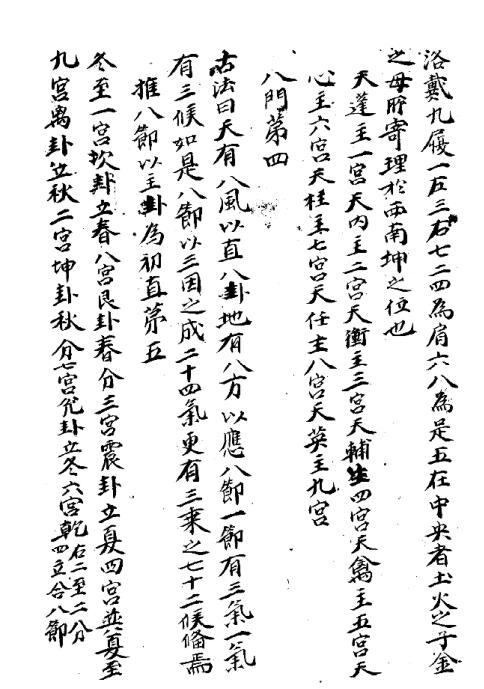 洛戴九履一左三右七二四為肩六八為足五在中央者土火之子金
之母所寄理於西南坤之位也
天蓬主一宮天內主二宮天衝主三宮天輔主四宮天禽主五宮天
心主六宮天柱主七宮天任主八宮天英主九宮
八門第四
古法曰天有八風以直八卦地有八方以應八節一節有三氣一氣
有三候如是八節以三因之成二十四氣更有三乘之七十二候備焉
推八節以主卦為初直第五
冬至一宮坎卦立春八宮艮卦春分三宮震卦立夏四宮巽夏至
九宮离卦立秋二宮坤卦秋分七宮兌卦立冬六宮乾右二至二分四立合八節